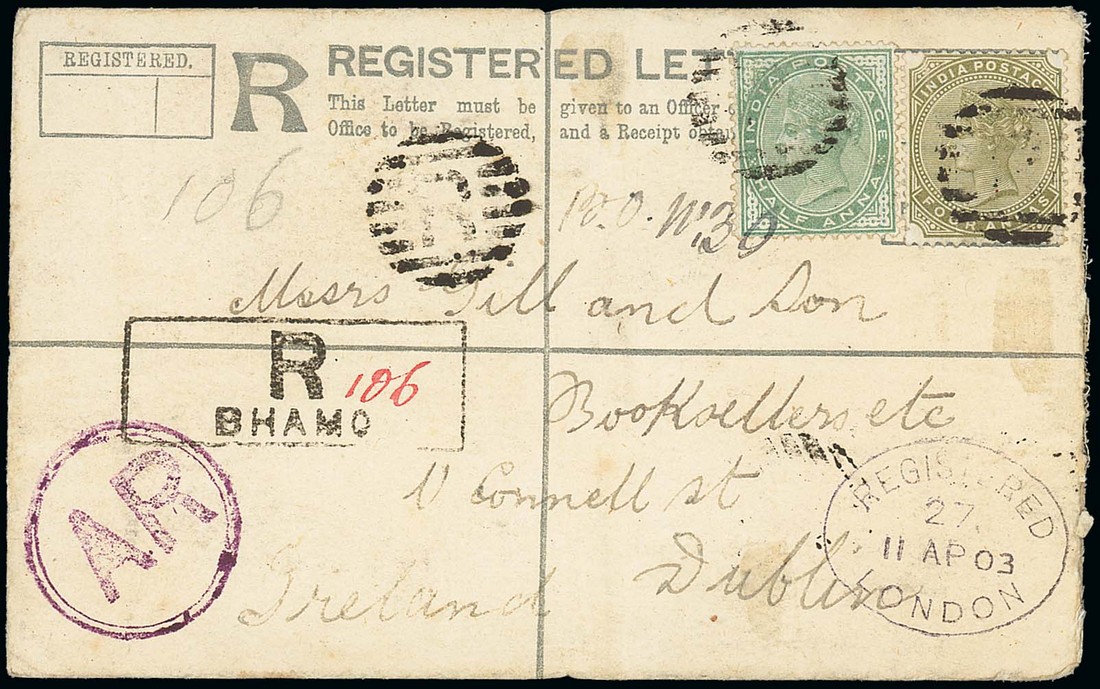 REGISTERED.
R
REGISTERED LET
This Letter must be given to an Officer
Office to be Registered, and a Receipt obta
INDIA POSTAGE
HALF ANNA
INDIA POSTAG
FOUR A
S
106
Messrs Gill and Son
R
106
BHAMO
Booksellers etc
Connell st
AR
Ireland
Dublin
REGISTERED
27.
11 AP 03
LONDON